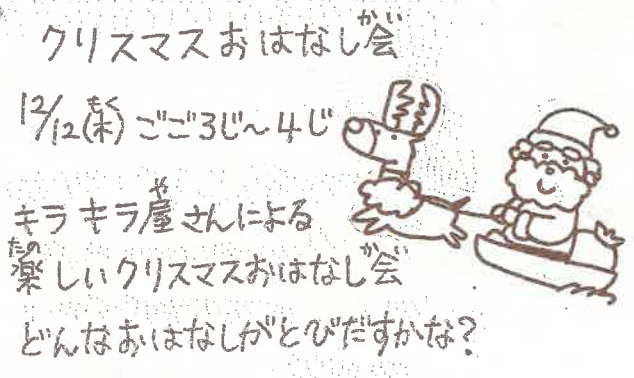 クリスマスおはなし会
12/12(木) ごご3じ～4じ
キラキラ屋さんによる
楽しいクリスマスおはなし会
どんなおはなしがとびだすかな?